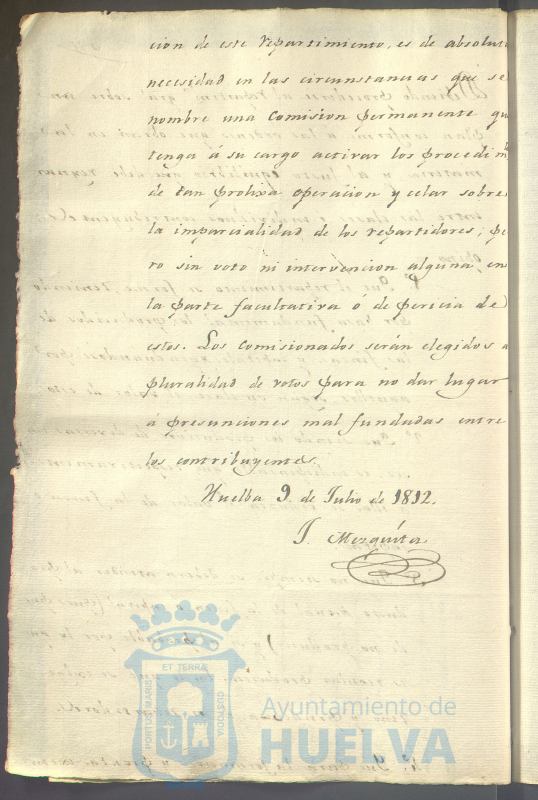 cion de este repartimiento, es de absolut
necesidad en las circunstancias que se
nombre una Comision permanente qu
tenga á su cargo activar los procedim
de tan prolixa operacion y celar sobre
la imparcialidad de los repartidores; pe
ro sin voto ni intervencion alguna en
la parte facultativa o de pericia de
estos. Los Comisionados serán elegidos a
pluralidad de votos para no dar lugar
á presunciones mal fundadas entre
los contribuyentes.
Huelba 9 de Julio de 1812.
J. Mezquita
PORTUS MARIS ET TERRÆ CUSTODIA
Ayuntamiento de
HUELVA